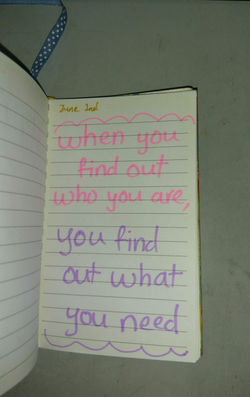 June 2nd
when you
find out
who you are,
you find
out what
you need